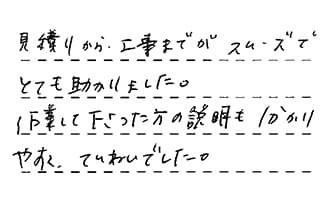 見積りから、工事までが スムーズで
とても助かりました。
作業して下さった方の説明も 分かり
やすく、ていねいでした。